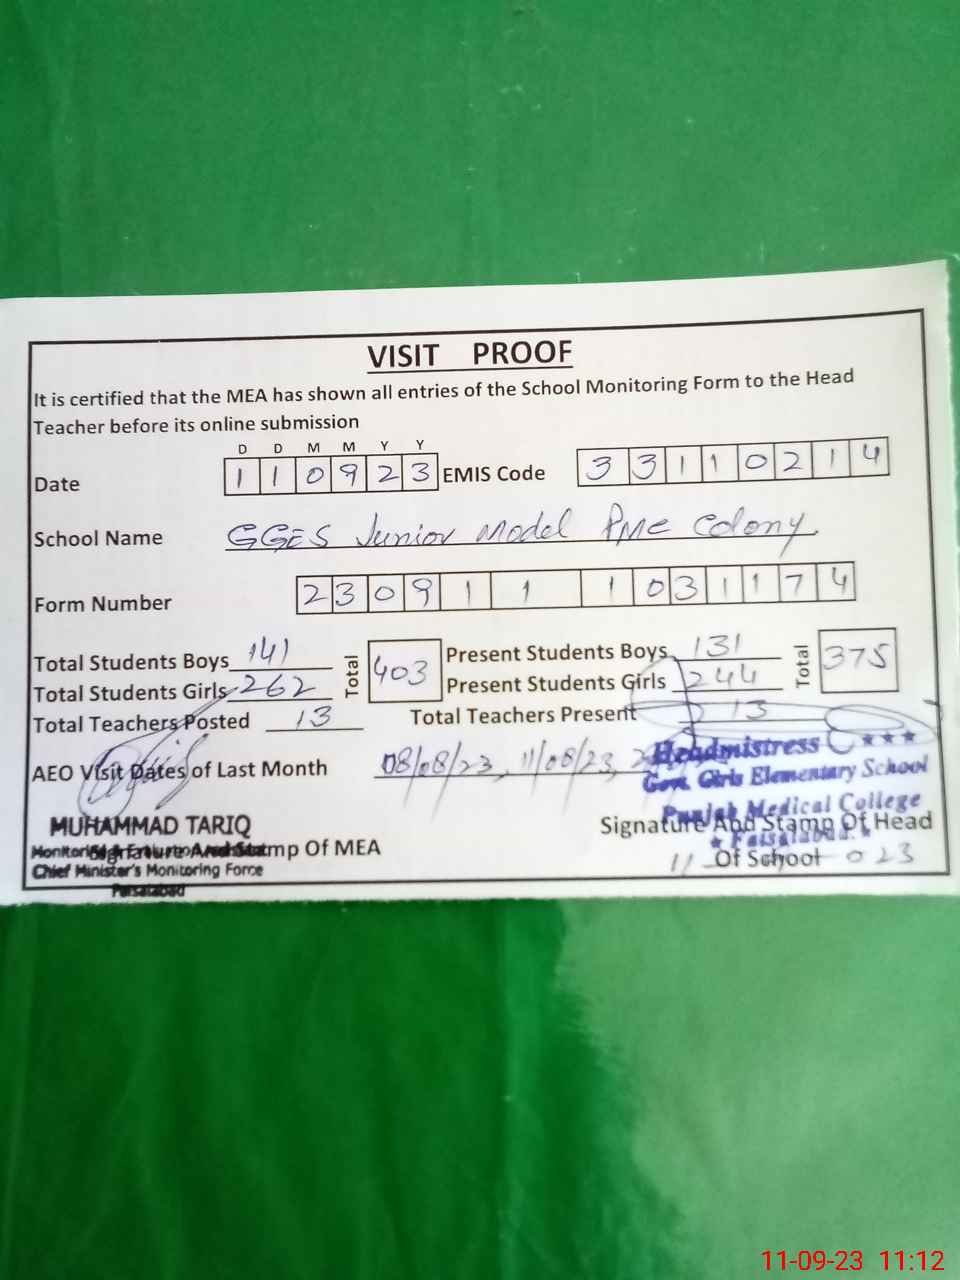 VISIT PROOF
It is certified that the MEA has shown all entries of the School Monitoring Form to the Head
Teacher before its online submission
D D M M Y Y
Date 1 1 0 9 2 3 EMIS Code 3 3 1 1 0 2 1 4
School Name GGES Junior Model PMC Colony
Form Number 2 3 0 9 1 1 1 0 3 1 1 7 4
Total Students Boys 141 Total 403 Present Students Boys 131 Total 375
Total Students Girls 262 Present Students Girls 244
Total Teachers Posted 13 Total Teachers Present 13
AEO Visit Dates of Last Month 08/08/23, 11/08/23,
Headmistress
Govt. Girls Elementary School
Punjab Medical College
Faisalabad.
MUHAMMAD TARIQ
Signature And Stamp Of Head
Signature And Stamp Of MEA
Of School
Chief Minister's Monitoring Force
11-09-23 11:12